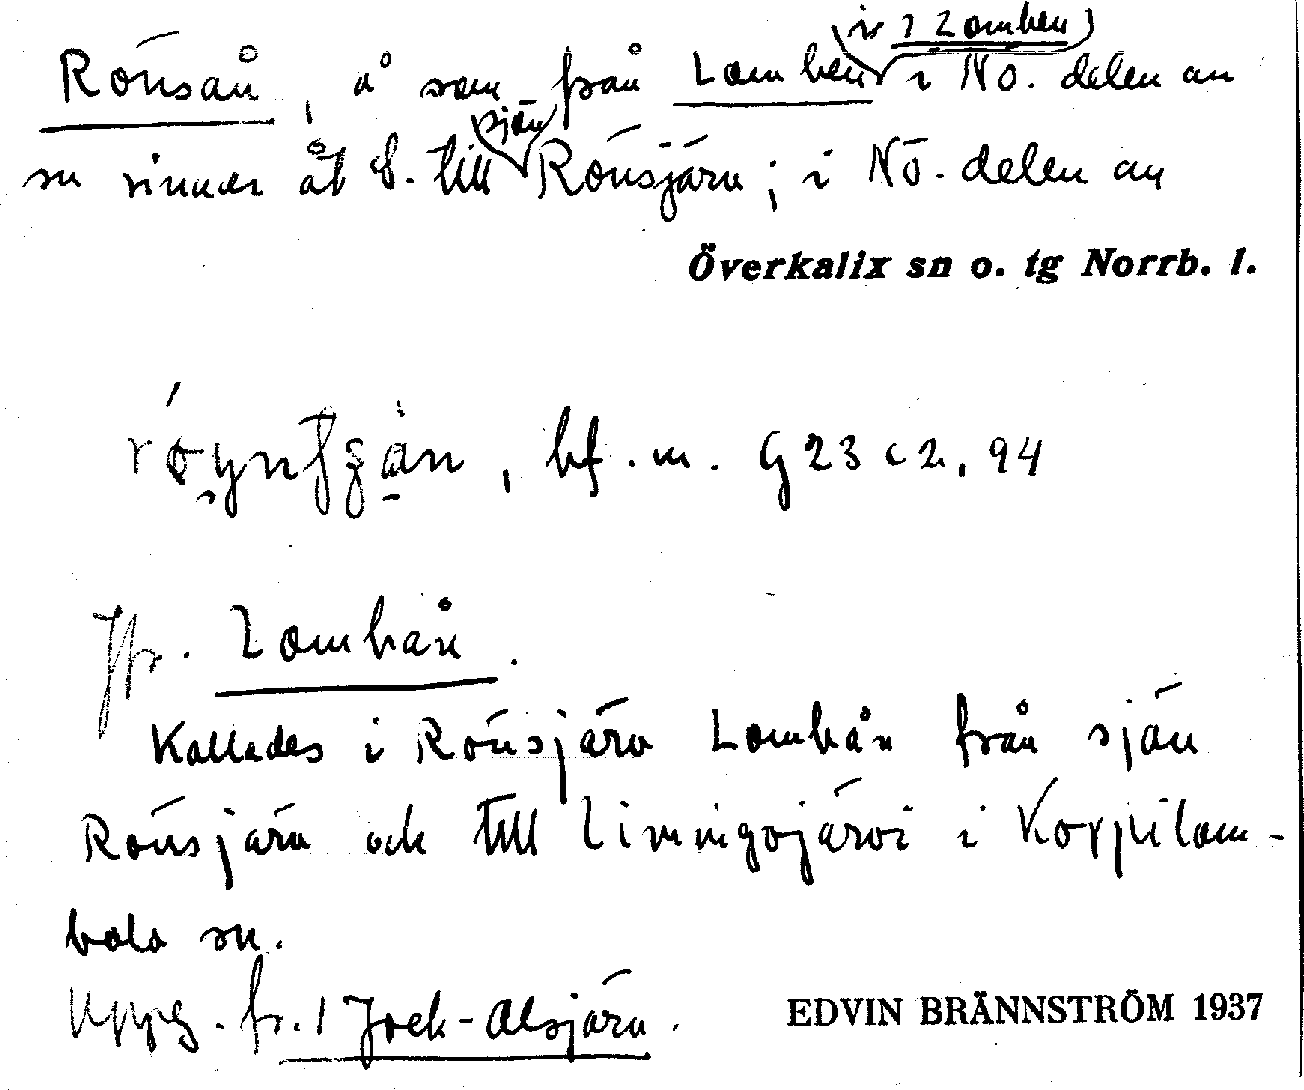 (i 1 Lomben)
Rönsån, å som från Lomben i NÖ. delen av
sn rinner åt S. till sjön Rönsjärv; i NÖ. delen av
Överkalix sn o. tg Norrb. l.
bf. m. G 23 c 2, 94
Jfr. Lombån.
Kallades i Rönsjärv Lombån från sjön
Rönsjärv och till Linningojärvi i Korpilom-
bolo sn.
Uppg. fr. 1 Jock-Alsjärv.
EDVIN BRÄNNSTRÖM 1937